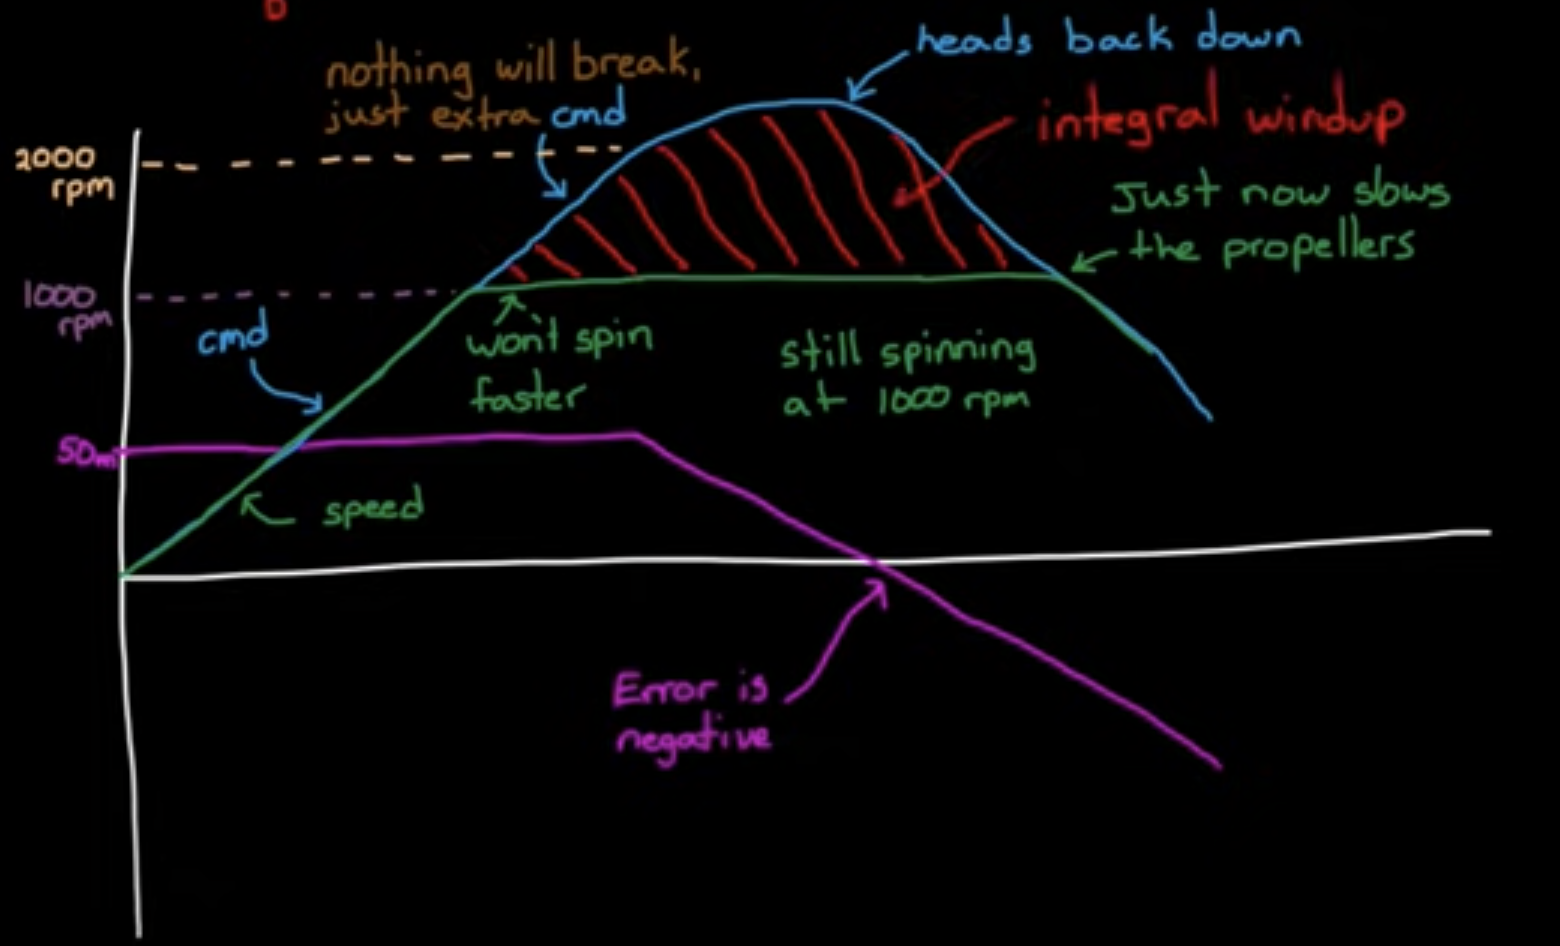 heads back down
nothing will break,
just extra cmd
integral windup
2000
rpm
Just now slows
the propellers
1000
rpm
cmd
won't spin
faster
still spinning
at 1000 rpm
50m
speed
Error is
negative